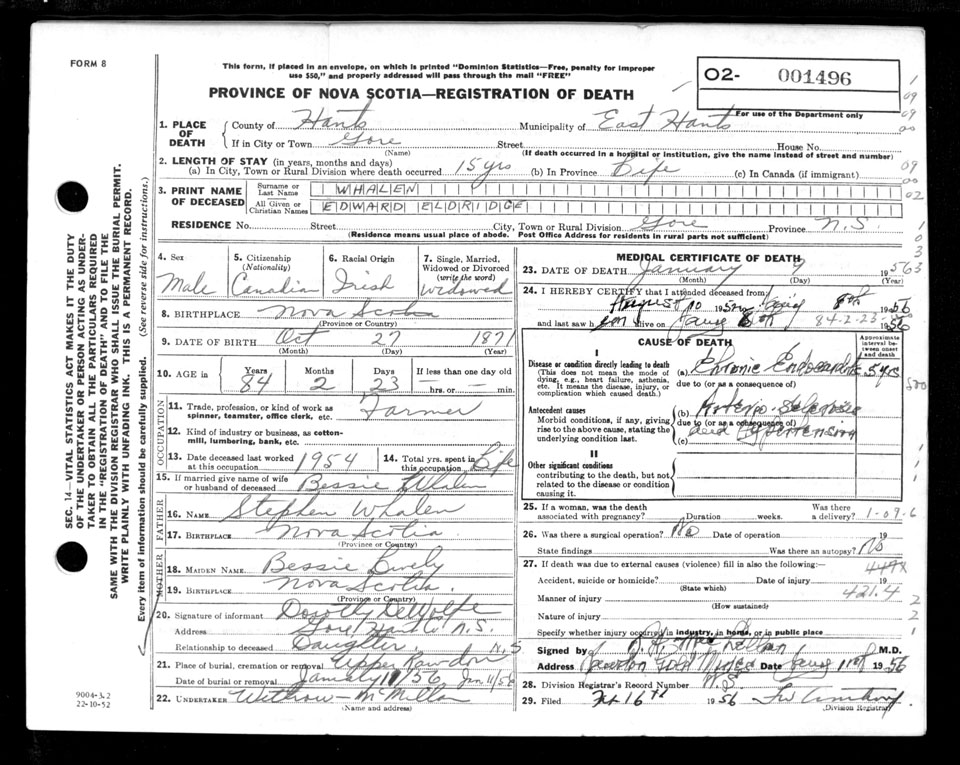 FORM 8
This form, if placed in an envelope, on which is printed "Dominion Statistics—Free, penalty for improper
use $50," and properly addressed will pass through the mail "FREE"
O2- 001496
For use of the Department only
PROVINCE OF NOVA SCOTIA—REGISTRATION OF DEATH
1. PLACE OF DEATH
County of Hants Municipality of East Hants
If in City or Town Gore Street House No.
(Name) (If death occurred in a hospital or institution, give the name instead of street and number)
2. LENGTH OF STAY (in years, months and days)
(a) In City, Town or Rural Division where death occurred 15 yrs (b) In Province Life (c) In Canada (if immigrant)
3. PRINT NAME OF DECEASED
Surname or Last Name WHALEN
All Given or Christian Names EDWARD ELDRIDGE
RESIDENCE No. Street City, Town or Rural Division Gore Province N.S.
(Residence means usual place of abode. Post Office Address for residents in rural parts not sufficient)
4. Sex Male
5. Citizenship (Nationality) Canadian
6. Racial Origin Irish
7. Single, Married, Widowed or Divorced (write the word) Widowed
8. BIRTHPLACE Nova Scotia
(Province or Country)
9. DATE OF BIRTH Oct 27 1871
(Month) (Day) (Year)
10. AGE in Years 84 Months 2 Days 23 If less than one day old
hrs. or min.
OCCUPATION
11. Trade, profession, or kind of work as spinner, teamster, office clerk, etc. Farmer
12. Kind of industry or business, as cotton-mill, lumbering, bank, etc.
13. Date deceased last worked at this occupation 1954
14. Total yrs. spent in this occupation Life
15. If married give name of wife or husband of deceased Bessie Whalen
FATHER
16. NAME Stephen Whalen
17. BIRTHPLACE Nova Scotia
(Province or Country)
MOTHER
18. MAIDEN NAME Bessie
19. BIRTHPLACE Nova Scotia
(Province or Country)
20. Signature of informant Dorothy DeWolfe
Address Gore Hants N.S.
Relationship to deceased Daughter
21. Place of burial, cremation or removal Upper Rawdon N.S
Date of burial or removal January 11/56 Jan 11/56
22. UNDERTAKER Withrow McMillan
(Name and address)
MEDICAL CERTIFICATE OF DEATH
23. DATE OF DEATH January 9 1956
(Month) (Day) (Year)
24. I HEREBY CERTIFY that I attended deceased from:
August 10 195 8th 1956
and last saw h im alive on 8th 1956
84-2-23
CAUSE OF DEATH
Approximate interval between onset and death
I
Disease or condition directly leading to death (a) Chronic Endocarditis 5 yrs
(This does not mean the mode of dying, e.g., heart failure, asthenia, etc. It means the disease, injury, or complication which caused death.)
due to (or as a consequence of)
Antecedent causes (b) Arterio Sclerosis
Morbid conditions, if any, giving rise to the above cause, stating the underlying condition last.
due to (or as a consequence of)
and Hypertension
(c)
II
Other significant conditions
contributing to the death, but not related to the disease or condition causing it.
25. If a woman, was the death associated with pregnancy? Duration weeks. Was there a delivery?
1-09-6
26. Was there a surgical operation? No Date of operation 19
State findings Was there an autopsy? No
27. If death was due to external causes (violence) fill in also the following:
Accident, suicide or homicide? Date of injury 19
(State which)
421.4
Manner of injury
(How sustained)
Nature of injury
Specify whether injury occurred in industry, in home, or in public place
Signed by M.D.
Address Date 11th 1956
28. Division Registrar's Record Number
29. Filed 16th 1956
(Division Registrar)
SEC. 14—VITAL STATISTICS ACT MAKES IT THE DUTY
OF THE UNDERTAKER OR PERSON ACTING AS UNDER-
TAKER TO OBTAIN ALL THE PARTICULARS REQUIRED
IN THE "REGISTRATION OF DEATH" AND TO FILE THE
SAME WITH THE DIVISION REGISTRAR WHO SHALL ISSUE THE BURIAL PERMIT.
WRITE PLAINLY WITH UNFADING INK. THIS IS A PERMANENT RECORD.
Every item of information should be carefully supplied. (See reverse side for instructions.)
9004-3.2
22-10-52